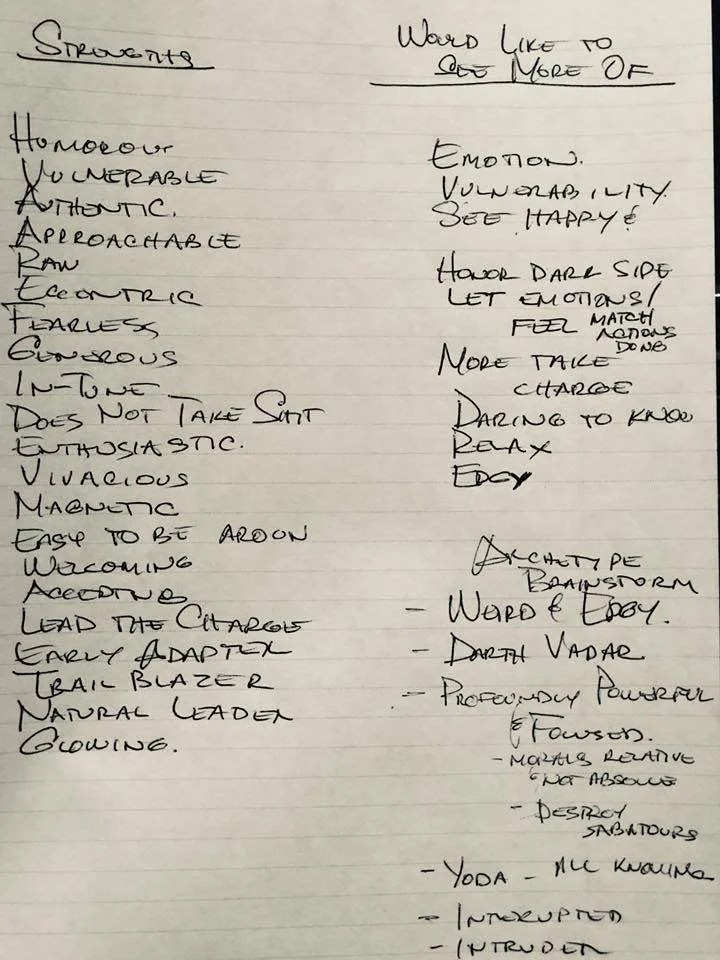 STRENGTHS
HOMOROUS
VULNERABLE
AUTHENTIC.
APPROACHABLE
RAW
ECCONTRIC
FEARLESS
GENEROUS
IN-TUNE
DOES NOT TAKE SHIT
ENTHUSIASTIC.
VIVACIOUS
MAGNETIC
EASY TO BE AROUN
WELCOMING
ACCEPTING
LEAD THE CHARGE
EARLY ADAPTER
TRAIL BLAZER
NATURAL LEADER
GLOWING.
WOULD LIKE TO
SEE MORE OF
EMOTION.
VULNERABILITY.
SEE HAPPY &
HONOR DARK SIDE
LET EMOTIONS/
FEEL MATCH
ACTIONS
DONE
MORE TAKE
CHARGE
DARING TO KNOW
RELAX
EDGY
ARCHETYPE
BRAINSTORM
- WEIRD & EDGY.
- DARTH VADAR.
- PROFOUNDLY POWERFUL
& FOCUSED.
- MORALS RELATIVE
& NOT ABSOLUE
- DESTROY
SABATOURS
- YODA - ALL KNOWING
- INTERUPTED
- INTRUDER